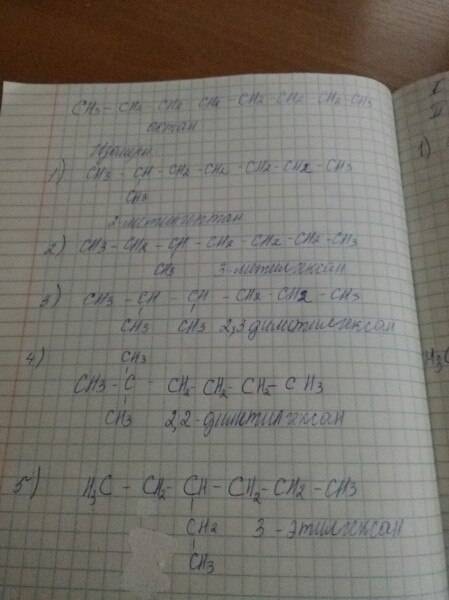 CH3 - CH2 CH2 CH2 - CH2 - CH2 CH2 - CH3
октан
Изомеры
1) CH3 - CH - CH2 - CH2 - CH2 - CH2 - CH3
CH3
2-метилгептан
2) CH3 - CH2 - CH - CH2 - CH2 - CH2 - CH3
CH3 3-метилгексан
3) CH3 - CH - CH - CH2 - CH2 - CH3
CH3 CH3 2,3 диметилгексан
4) CH3
CH3 - C - CH2 - CH2 - CH2 - CH3
CH3 2,2-диметилгексан
5) H3C - CH2 - CH - CH2 - CH2 - CH3
CH2 3-этилгексан
CH3
I
II
1)
H3C